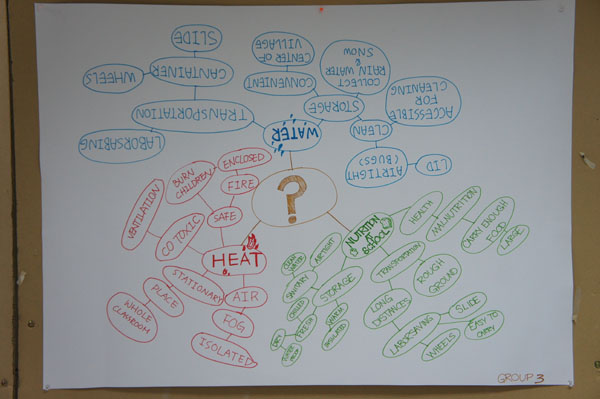 SLIDE
CANTAINER
WHEELS
TRANSPORTATION
LABORSABING
WATER
CENTER OF
VILLAGE
CONVENIENT
STORAGE
COLLECT
RAIN WATER
SNOW
CLEAN
ACCESSIBLE
FOR
CLEANING
AIRTIGHT
(BUGS)
LID
?
ENCLOSED
BURN
CHILDREN
FIRE
SAFE
VENTILATION
CO TOXIC
HEAT
STATIONARY
PLACE
WHOLE
CLASSROOM
AIR
FOG
ISOLATED
NUTRITION
AT
SCHOOL
HEALTH
MALNUTRITION
CARRY ENOUGH
FOOD
LARGE
TRANSPORTATION
ROUGH
GROUND
LONG
DISTANCES
LABORSAVING
SLIDE
WHEELS
EASY TO
CARRY
STORAGE
AIRTIGHT
SANITARY
CLEAN
WATER
FRESH
WARM
INSULATED
GROUP 3